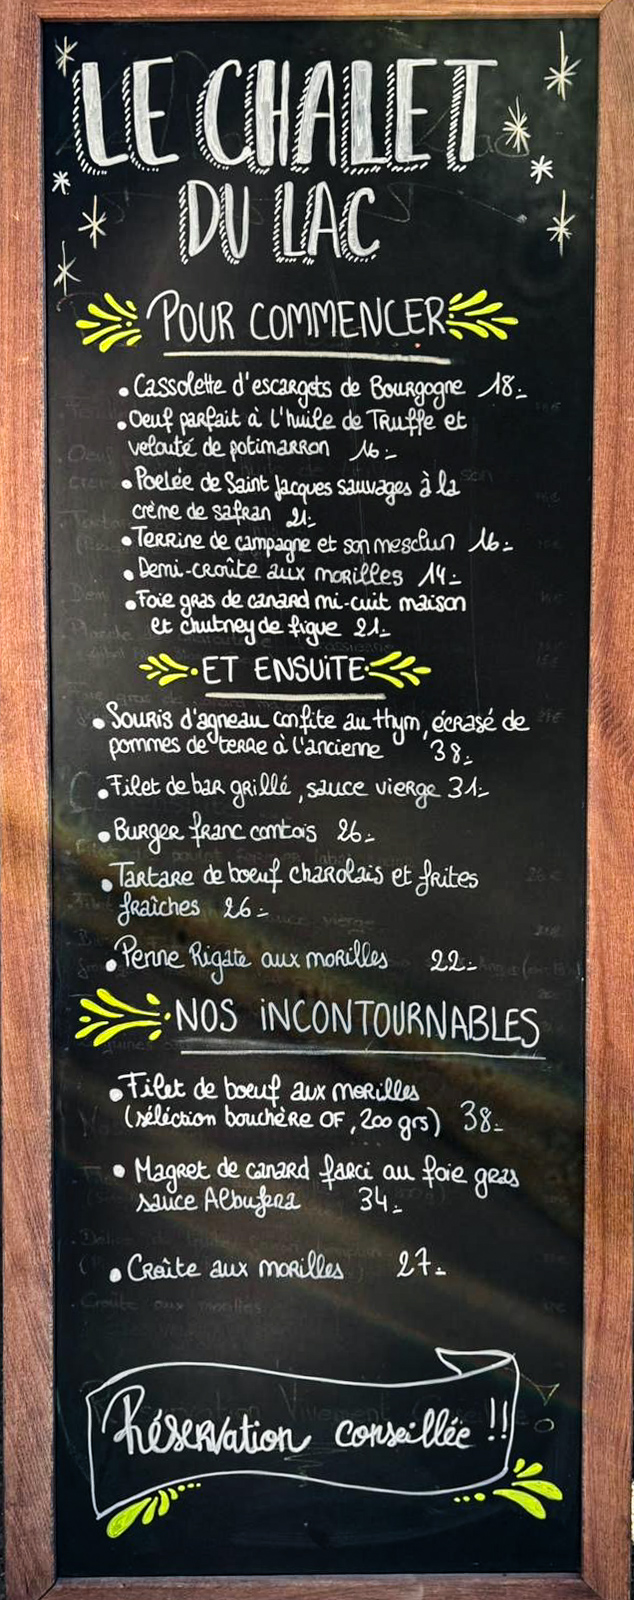 LE CHALET
DU LAC
POUR COMMENCER
• Cassolette d'escargots de Bourgogne 18.-
• Oeuf parfait à l'huile de Truffe et
velouté de potimarron 16.-
• Poelée de Saint Jacques sauvages à la
crème de safran 21.-
• Terrine de campagne et son mesclun 16.-
• Demi-croûte aux morilles 14.-
• Foie gras de canard mi-cuit maison
et chutney de figue 21.-
ET ENSUITE
• Souris d'agneau confite au thym, écrasé de
pommes de terre à l'ancienne 38.-
• Filet de bar grillé, sauce vierge 31.-
• Burger franc comtois 26.-
• Tartare de boeuf charolais et frites
fraîches 26.-
• Penne Rigate aux morilles 22.-
NOS INCONTOURNABLES
• Filet de boeuf aux morilles
(séléction bouchère OF, 200 grs) 38.-
• Magret de canard farci au foie gras
sauce Albufera 34.-
• Croûte aux morilles 27.-
Réservation conseillée !!